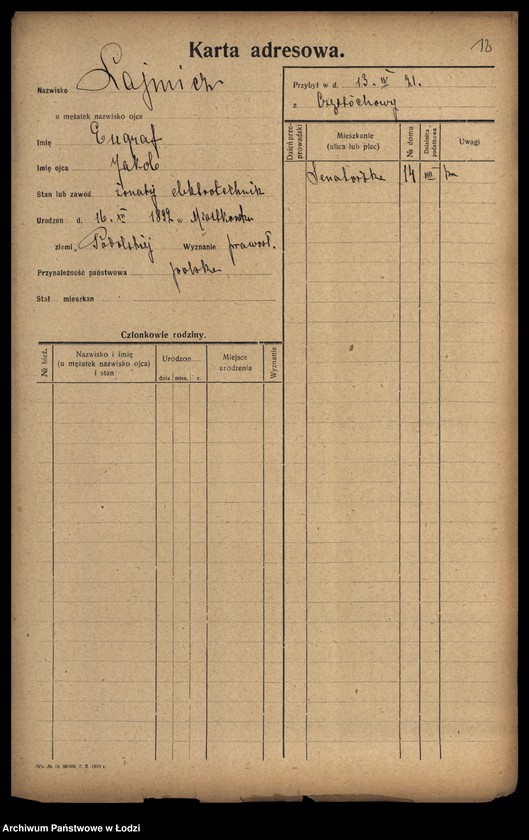 18
Karta adresowa.
Nazwisko Łajmicz
u mężatek nazwisko ojca
Imię Eugraf
Imię ojca Jakób
Stan lub zawód żonaty elektrotechnik
Urodzon d. 16. XII 1892 w
ziemi Podolskiej Wyznanie prawosł.
Przynależność państwowa polska
Stał mieszkan
Przybył w d. 13. IV 21.
z Częstochowy
Dzień przeprowadzki
Mieszkanie
(ulica lub plac)
№ domu
Dzielnica podatkowa
Uwagi
Senatorska 14 VIII
Członkowie rodziny.
№ bież.
Nazwisko i imię
(u mężatek nazwisko ojca)
i stan
Urodzon
dnia mies. r.
Miejsce
urodzenia
Wyznanie
Archiwum Państwowe w Łodzi